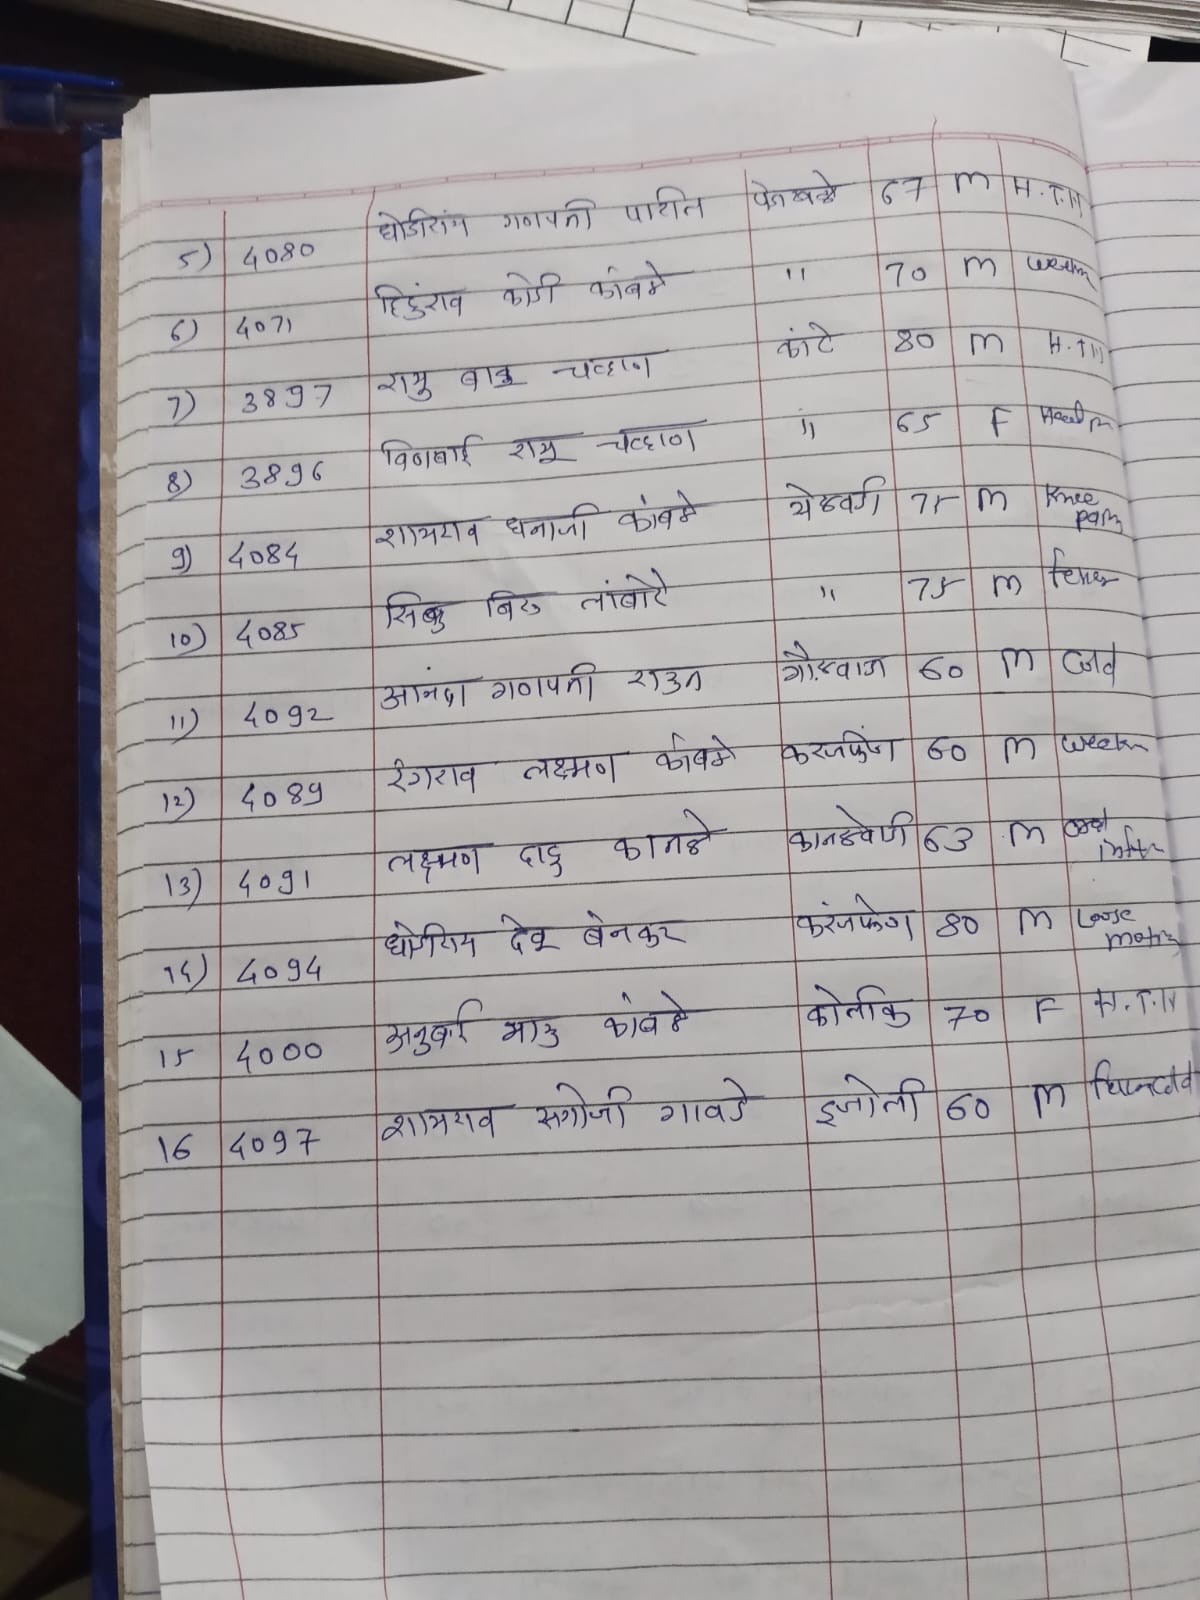 5) 4080 धोंडीराम गणपती पाटील 67 M H.T.N
6) 4071 हिंदुराव कोंडी कांबळे " 70 M weekn
7) 3897 रामु बाबु चव्हाण कांटे 80 M H.T.N
8) 3896 रामु चव्हाण " 65 F
9) 4084 शामराव धनाजी कांबळे येळवडी 75 M Knee pain
10) 4085 बिरु तांबोरे " 75 M fever
11) 4092 आनंदा गणपती राऊत 60 M cold
12) 4089 रंगराव लक्ष्मण कांबळे करंजफेण 60 M weekn
13) 4091 लक्ष्मण दादु कानडे 63 M
14) 4094 धोंडीराम देवू बेनकर करंजफेण 80 M Loose motion
15 4000 अनुबाई भाऊ कांबळे कोलीक 70 F H.T.N
16 4097 शामराव गावडे इजोली 60 M